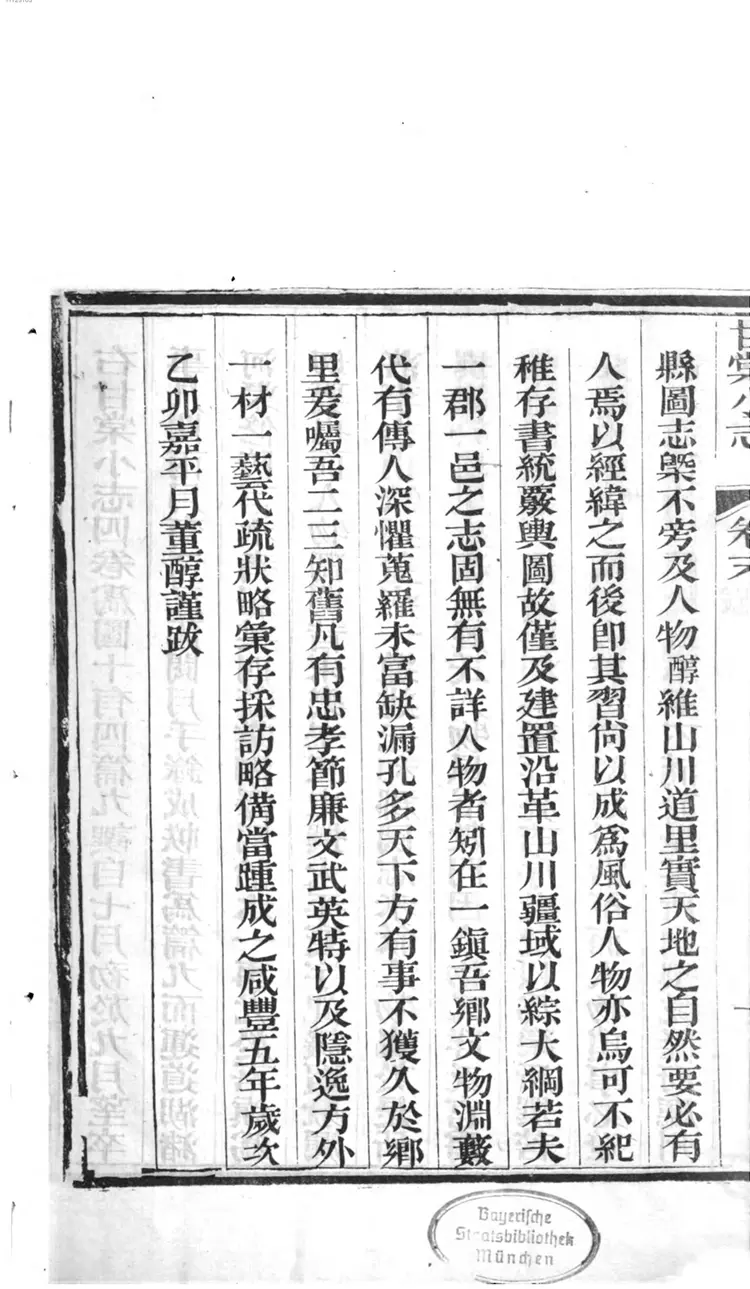 甘棠小志
卷末
縣圖志槩不旁及人物醇維山川道里實天地之自然要必有
人焉以經緯之而後卽其習尙以成爲風俗人物亦烏可不紀
稚存書統覈輿圖故僅及建置沿革山川疆域以綜大綱若夫
一郡一邑之志固無有不詳人物者矧在一鎭吾鄕文物淵藪
代有傳人深懼蒐羅未富缺漏孔多天下方有事不獲久於鄕
里爰囑吾二三知舊凡有忠孝節廉文武英特以及隱逸方外
一材一藝代疏狀略彙存採訪略備當踵成之咸豐五年歲次
乙卯嘉平月董醇謹跋
Bayerische
Staatsbibliothek
München